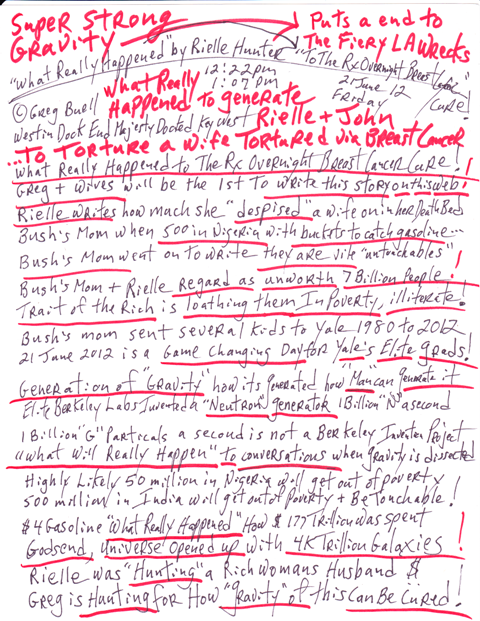 Super Strong Gravity
Puts a end to The Fiery LA Wrecks
"What Really Happened" by Rielle Hunter "To The Rx Overnight Breast Cancer Cure!
12:22pm
1:07pm
21 June 12
Friday
What Really Happened to generate
© Greg Buell
Westin Dock End Majesty Docked Key West Rielle + John
...To Torture a wife Tortured via Breast Cancer
What Really Happened to The Rx Overnight Breast Cancer Cure!!
Greg + Wives will be the 1st To write this story on this web!
Rielle writes how much she "despised" a wife on in her Death Bed
Bush's Mom when 500 in Nigeria with buckets to catch gasoline...
Bush's Mom went on to write they are vile "untouchables"
Bush's Mom + Rielle Regard as unworth 7 Billion People!
Trait of the Rich is loathing them In Poverty, illiterate!
Bush's mom sent several kids to Yale 1980 to 2012
21 June 2012 is a Game Changing Day for Yale's Elite grads!
Generation of "Gravity" how its generated how "Man" can generate it
Elite Berkeley Labs Invented a "Neutron" generator 1 Billion "N" a second
1 Billion "G" Particals a second is not a Berkeley Invention Project
"What Will Really Happen" to conversations when gravity is dissected
Highly Likely 50 million in Nigeria will get out of poverty
500 million in India will get out of Poverty + Be Touchable!
$4 Gasoline "What Really Happened" How $177 Trillion was spent
Godsend, Universe opened up with 4K Trillion Galaxies!
Rielle was "Hunting" a Rich womans Husband $!
Greg is Hunting for How "gravity" of this Can Be Cured!